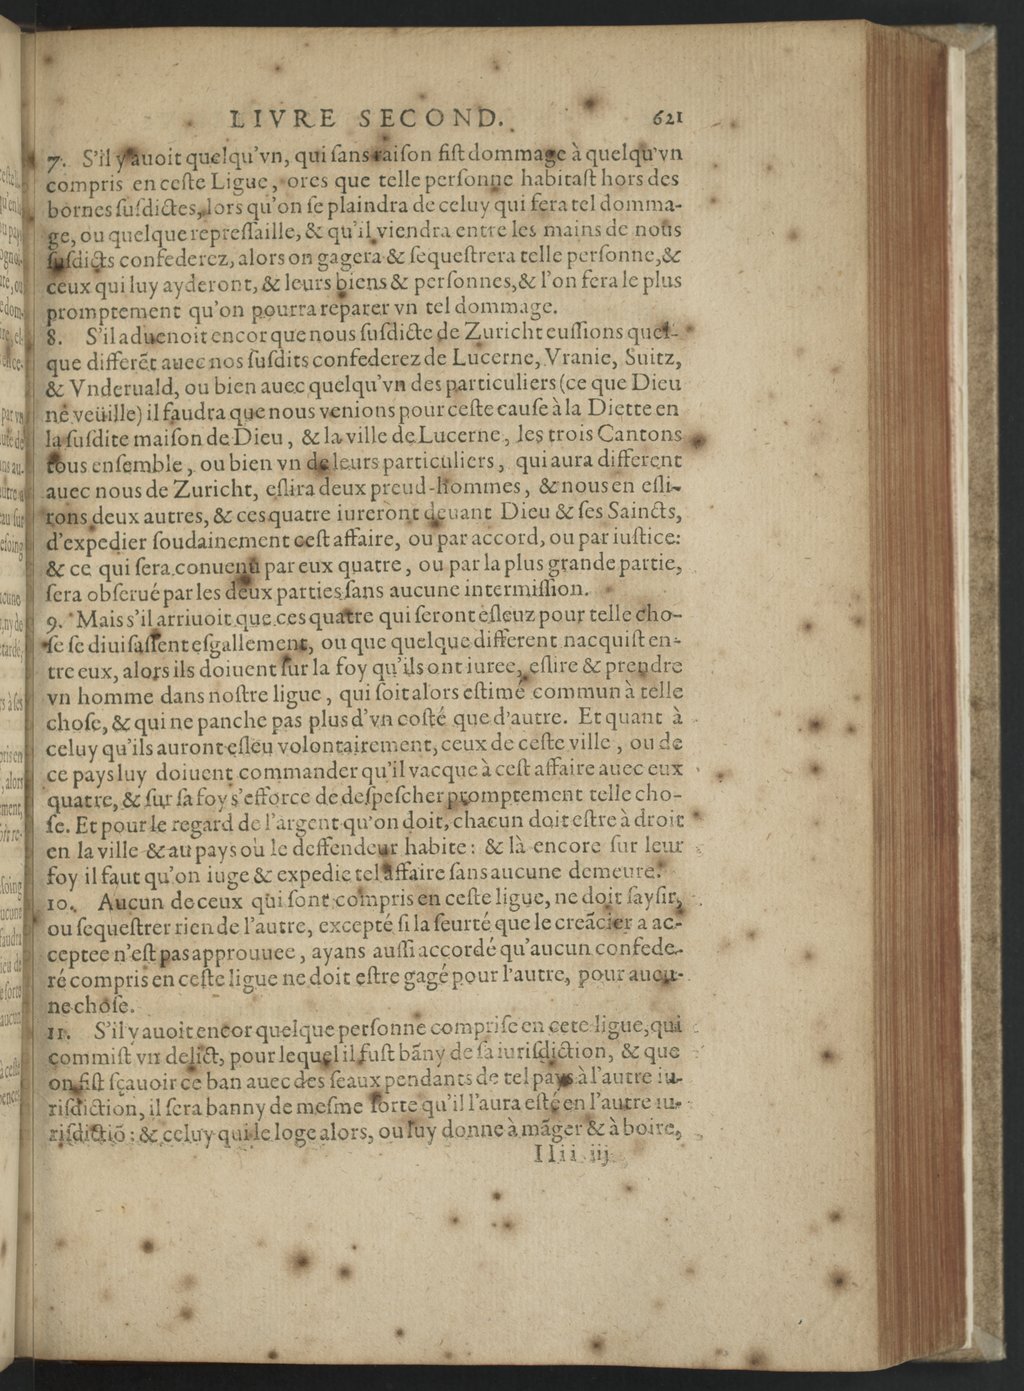 LIVRE SECOND. 621
7. S'il y auoit quelqu'vn, qui sans raison fist dommage à quelqu'vn
compris en ceste Ligue, ores que telle personne habitast hors des
bornes susdictes, lors qu'on se plaindra de celuy qui fera tel domma-
ge, ou quelque repressaille, & qu'il viendra entre les mains de nous
susdicts confederez, alors on gagera & sequestrera telle personne, &
ceux qui luy ayderont, & leurs biens & personnes, & l'on fera le plus
promptement qu'on pourra reparer vn tel dommage.
8. S'il aduenoit encor que nous susdicte de Zuricht eussions quel-
que differẽt auec nos susdits confederez de Lucerne, Vranie, Suitz,
& Vnderuald, ou bien auec quelqu'vn des particuliers (ce que Dieu
ne veüille) il faudra que nous venions pour ceste cause à la Diette en
la susdite maison de Dieu, & la ville de Lucerne, les trois Cantons
tous ensemble, ou bien vn de leurs particuliers, qui aura different
auec nous de Zuricht, eslira deux preud-hommes, & nous en esli-
rons deux autres, & ces quatre iureront deuant Dieu & ses Saincts,
d'expedier soudainement cest affaire, ou par accord, ou par iustice:
& ce qui sera conuenu par eux quatre, ou par la plus grande partie,
sera obserué par les deux parties sans aucune intermission.
9. Mais s'il arriuoit que ces quatre qui seront esleuz pour telle cho-
se se diuisassent esgallement, ou que quelque different nacquist en-
tre eux, alors ils doiuent sur la foy qu'ils ont iuree, eslire & prendre
vn homme dans nostre ligue, qui soit alors estimé commun à telle
chose, & qui ne panche pas plus d'vn costé que d'autre. Et quant à
celuy qu'ils auront esleu volontairement, ceux de ceste ville, ou de
ce pays luy doiuent commander qu'il vacque à cest affaire auec eux
quatre, & sur sa foy s'efforce de despescher promptement telle cho-
se. Et pour le regard de l'argent qu'on doit, chacun doit estre à droit
en la ville & au pays où le deffendeur habite: & là encore sur leur
foy il faut qu'on iuge & expedie tel affaire sans aucune demeure.
10. Aucun de ceux qui sont compris en ceste ligue, ne doit saysir,
ou sequestrer rien de l'autre, excepté si la seurté que le creãcier a ac-
ceptee n'est pas approuuee, ayans aussi accordé qu'aucun confede-
ré compris en ceste ligue ne doit estre gagé pour l'autre, pour aucu-
ne chose.
11. S'il y auoit encor quelque personne comprise en cete ligue, qui
commist vn delict, pour lequel il fust bãny de sa iurisdiction, & que
on fist sçauoir ce ban auec des seaux pendants de tel pays à l'autre iu-
risdiction, il sera banny de mesme sorte qu'il l'aura esté en l'autre iu-
risdictiõ: & celuy qui le loge alors, ou luy donne à mãger & à boire,
IIii iij